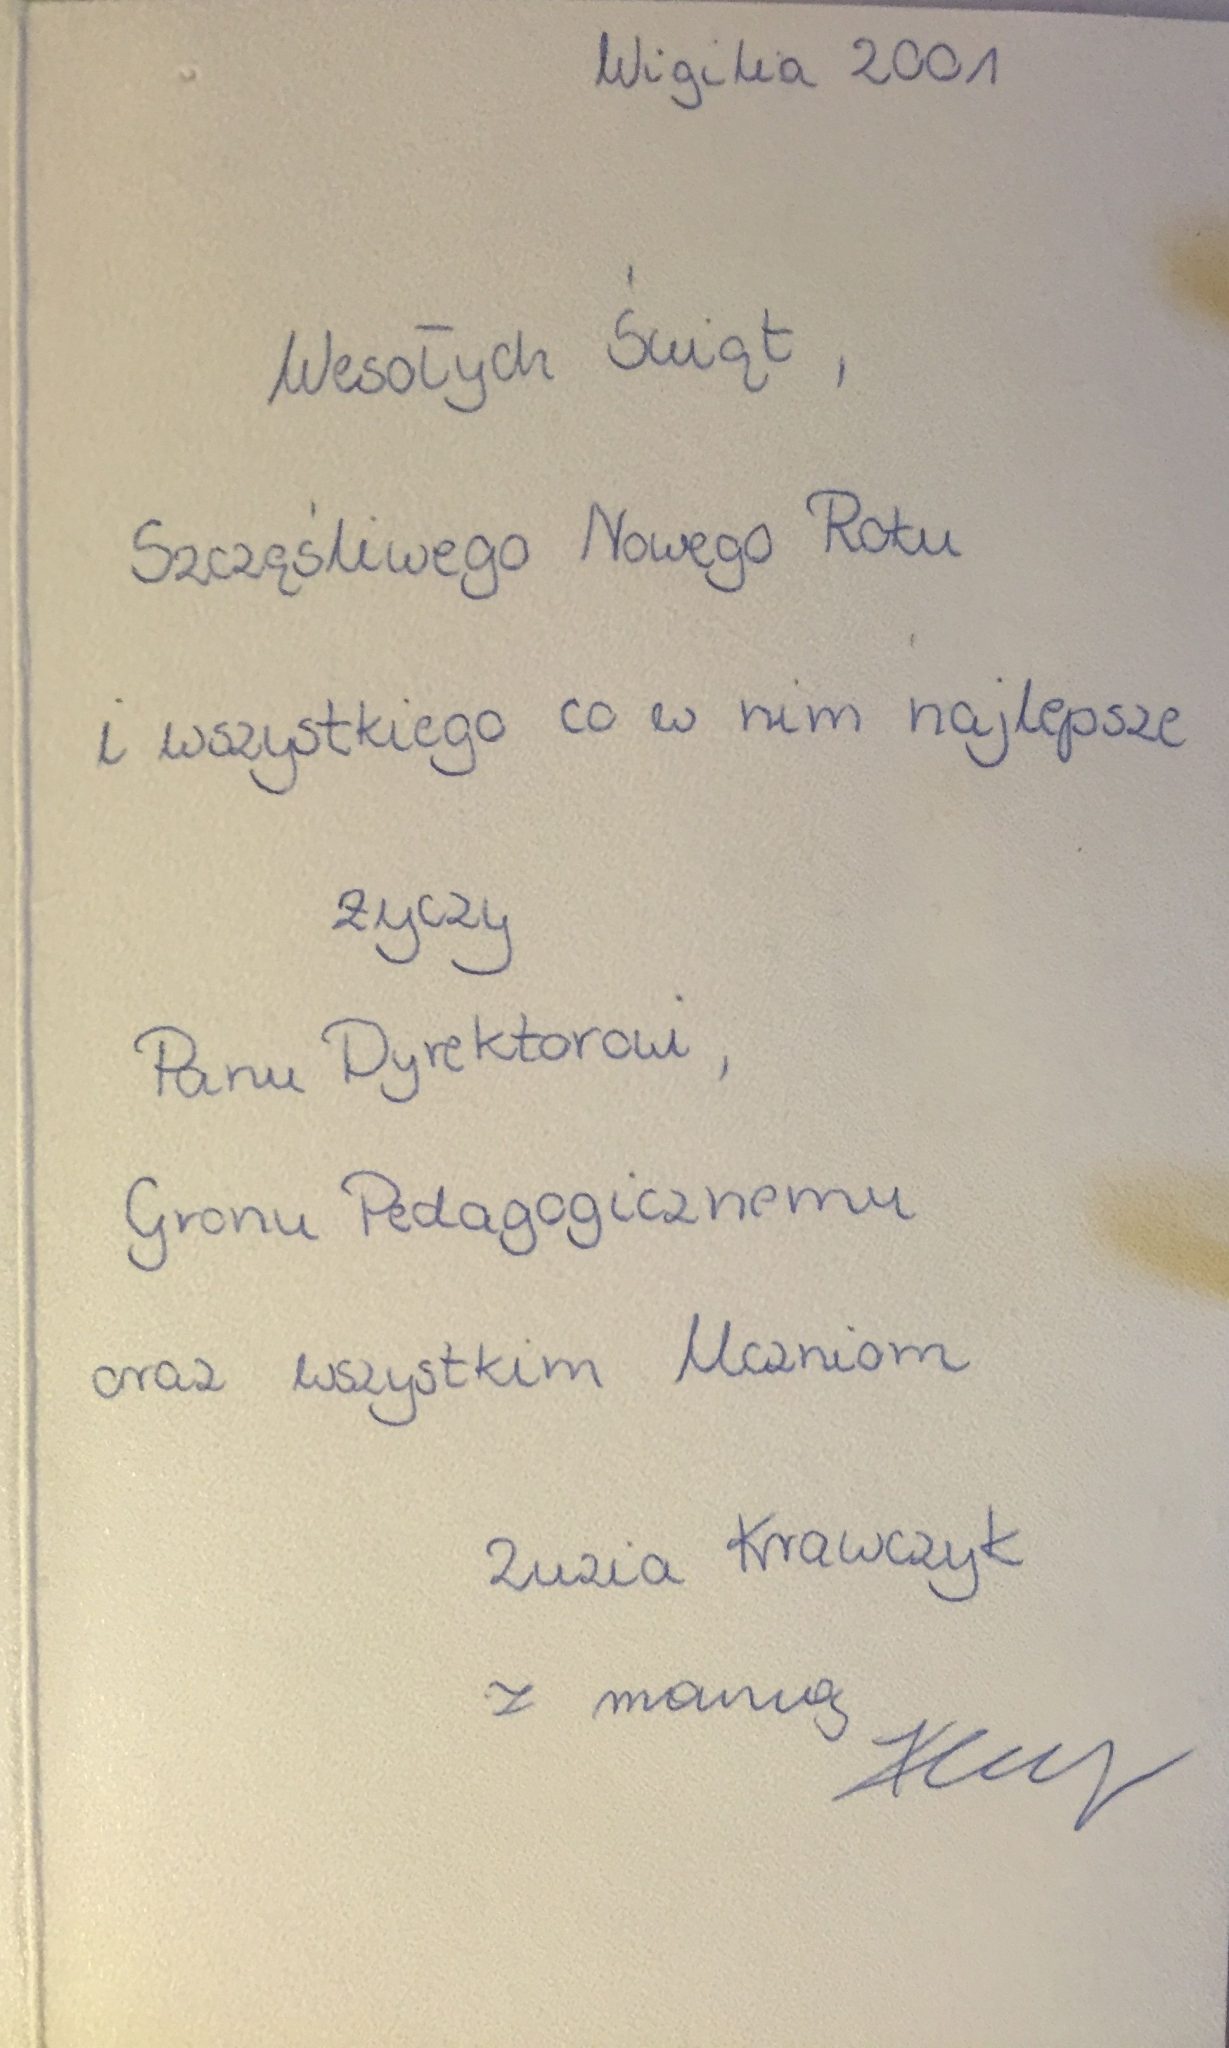 Wigilia 2001
Wesołych Świąt,
Szczęśliwego Nowego Roku
i wszystkiego co w nim najlepsze
życzy
Panu Dyrektorowi,
Gronu Pedagogicznemu
oraz wszystkim Uczniom
Zuzia Krawczyk
z mamą